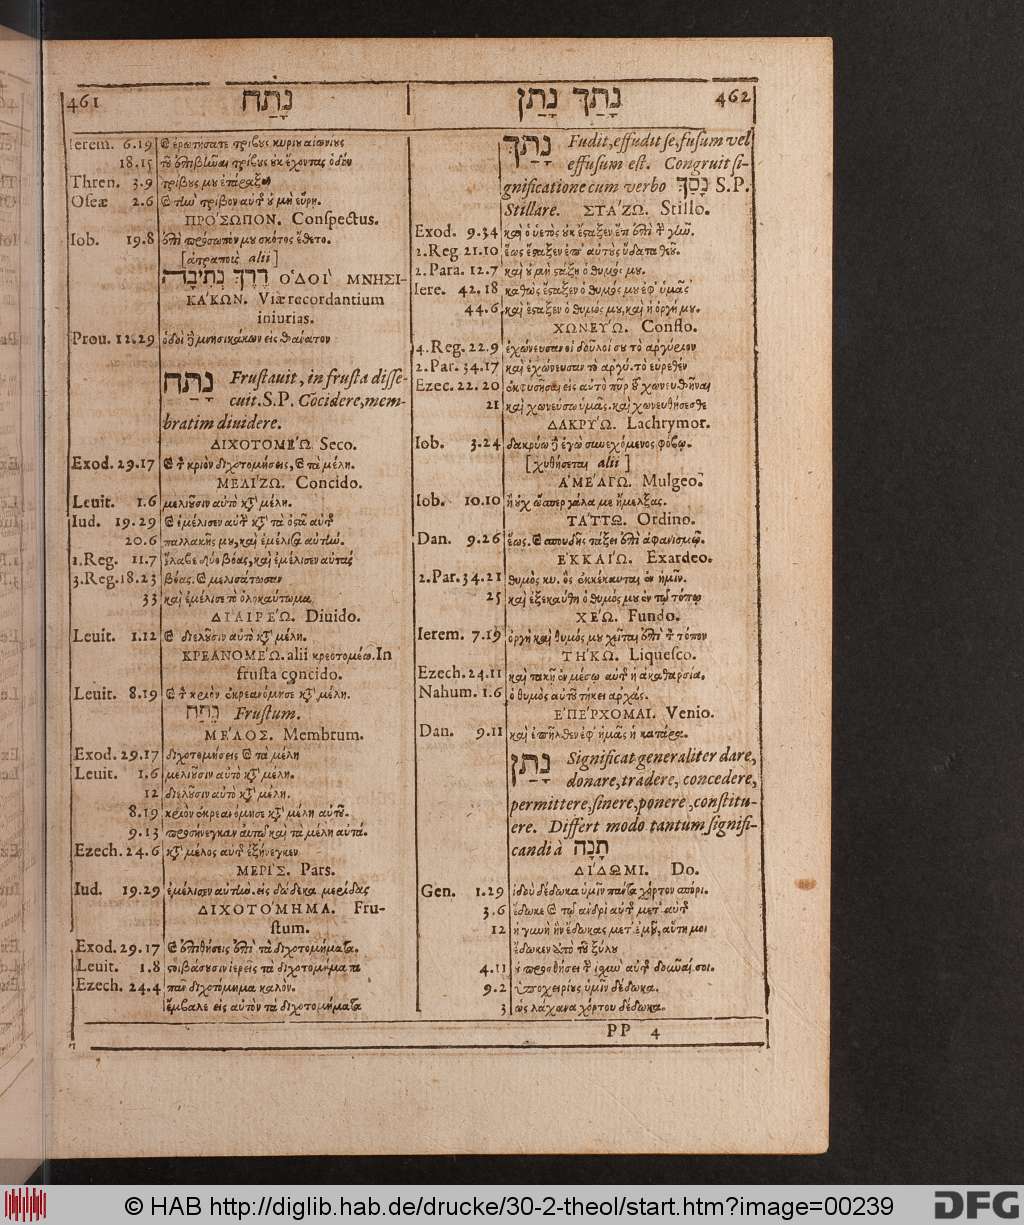 461 נָתַח
Ierem. 6.19 ἐρωτήσατε τρίβους κυρίου αἰωνίους
18.15 τοῦ ἐπιβῆναι τρίβους οὐκ ἔχοντας ὁδὸν
Thren. 3.9 τρίβους μου ἐτάραξεν
Oseæ 2.6 τὴν τρίβον αὐτῆς οὐ μὴ εὕρῃ.
ΠΡΟΣΩΠΟΝ. Conspectus.
Iob. 19.8 ἐπὶ πρόσωπόν μου σκότος ἔθετο.
[ἀτραποῖς alii]
דֶּרֶךְ נְתִיבָה ΟΔΟΙ ΜΝΗΣΙ-
ΚΑΚΩΝ. Viæ recordantium
iniurias.
Prou. 12.29 ὁδοὶ δὲ μνησικάκων εἰς θάνατον
נָתַח Frustauit, in frusta disse-
cuit. S.P. Cōcidere, mem-
bratim diuidere.
ΔΙΧΟΤΟΜΕΩ Seco.
Exod. 29.17 τὸν κριὸν διχοτομήσεις, τὰ μέλη.
ΜΕΛΙΖΩ. Concido.
Leuit. 1.6 μελιοῦσιν αὐτὸ κατὰ μέλη.
Iud. 19.29 ἐμέλισεν αὐτὴν κατὰ τὰ ὀστᾶ αὐτῆς
20.6 παλλακῆς μου, καὶ ἐμέλισα αὐτήν.
1.Reg. 11.7 ἔλαβε δύο βόας, καὶ ἐμέλισεν αὐτάς
3.Reg. 18.23 βόας. μελισάτωσαν
33 καὶ ἐμέλισε τὸ ὁλοκαύτωμα
ΔΙΑΙΡΕΩ. Diuido.
Leuit. 1.12 διελοῦσιν αὐτὸ κατὰ μέλη.
ΚΡΕΑΝΟΜΕΩ. alii κρεοτομέω. In
frusta concido.
Leuit. 8.19 τὸν κριὸν ἐκρεανόμησε κατὰ μέλη.
נֵתַח Frustum.
ΜΕΛΟΣ. Membrum.
Exod. 29.17 διχοτομήσεις τὰ μέλη
Leuit. 1.6 μελιοῦσιν αὐτὸ κατὰ μέλη.
12 διελοῦσιν αὐτὸ κατὰ μέλη.
8.19 κριὸν ἐκρεανόμησε κατὰ μέλη αὐτοῦ.
9.13 προσήνεγκαν αὐτῷ καὶ τὰ μέλη αὐτά.
Ezech. 24.6 κατὰ μέλος αὐτῆς ἐξήνεγκεν
ΜΕΡΙΣ. Pars.
Iud. 19.29 ἐμέλισεν αὐτὴν. εἰς δώδεκα μερίδας
ΔΙΧΟΤΟΜΗΜΑ. Fru-
stum.
Exod. 29.17 ἐπιθήσεις ἐπὶ τὰ διχοτομήματα.
Leuit. 1.8 στοιβάσουσιν ἱερεῖς τὰ διχοτομήματα
Ezech. 24.4 πᾶν διχοτόμημα καλόν.
ἔμβαλε εἰς αὐτὸν τὰ διχοτομήματα
נָתַךְ נָתַן 462
נָתַךְ Fudit, effudit se, fusum vel
effusum est. Congruit si-
gnificatione cum verbo נָסַךְ S.P.
Stillare. ΣΤΑΖΩ. Stillo.
Exod. 9.34 καὶ ὁ ὑετὸς οὐκ ἔσταξεν ἔτι ἐπὶ τὴν γῆν.
2.Reg 21.10 ἕως ἔσταξεν ἐπ' αὐτοὺς ὕδατα θεοῦ.
2.Para. 12.7 καὶ οὐ μὴ στάξῃ ὁ θυμός μου.
Iere. 42.18 καθὼς ἔσταξεν ὁ θυμός μου ἐφ' ὑμᾶς
44.6 καὶ ἔσταξεν ὁ θυμός μου, καὶ ἡ ὀργή μου.
ΧΩΝΕΥΩ. Conflo.
4.Reg. 22.9 ἐχώνευσαν οἱ δοῦλοί σου τὸ ἀργύριον
2.Par. 34.17 καὶ ἐχώνευσαν τὸ ἀργύ. τὸ εὑρεθὲν
Ezec. 22.20 ἐκφυσῆσαι εἰς αὐτὸ πῦρ τοῦ χωνευθῆναι
21 καὶ χωνεύσω ὑμᾶς. καὶ χωνευθήσεσθε
ΔΑΚΡΥΩ. Lachrymor.
Iob. 3.24 δακρύω δὲ ἐγὼ συνεχόμενος φόβῳ.
[χυθήσεται alii]
ΑΜΕΛΓΩ. Mulgeo.
Iob. 10.10 ἢ οὐχ ὥσπερ γάλα με ἤμελξας.
ΤΑΤΤΩ. Ordino.
Dan. 9.26 ἕως. σπουδῆς τάξει ἐπὶ ἀφανισμῷ.
ΕΚΚΑΙΩ. Exardeo.
2.Par. 34.21 θυμὸς κυ. ὃς ἐκκέκαυται ἐν ἡμῖν.
25 καὶ ἐξεκαύθη ὁ θυμός μου ἐν τῷ τόπῳ
ΧΕΩ. Fundo.
Ierem. 7.19 ὀργὴ καὶ θυμός μου χεῖται ἐπὶ τὸν τόπον
ΤΗΚΩ. Liquesco.
Ezech. 24.11 καὶ τακῇ ἐν μέσῳ αὐτῆς ἡ ἀκαθαρσία.
Nahum. 1.6 ὁ θυμὸς αὐτοῦ τήκει ἀρχάς.
ΕΠΕΡΧΟΜΑΙ. Venio.
Dan. 9.11 καὶ ἐπῆλθεν ἐφ' ἡμᾶς ἡ κατάρα.
נָתַן Significat generaliter dare,
donare, tradere, concedere,
permittere, sinere, ponere, constitu-
ere. Differt modo tantum signifi-
candi à תָנָה
ΔΙΔΩΜΙ. Do.
Gen. 1.29 ἰδοὺ δέδωκα ὑμῖν πάντα χόρτον σπόρι.
3.6 ἔδωκε τῷ ἀνδρὶ αὐτῆς μετ' αὐτῆς
12 ἡ γυνὴ ἣν ἔδωκας μετ' ἐμοῦ, αὕτη μοι
ἔδωκεν ἀπὸ τοῦ ξύλου
4.11 οὐ προσθήσει τὴν ἰσχὺν αὐτῆς δοῦναί σοι.
9.2 ὑποχειρίους ὑμῖν δέδωκα.
3 ὡς λάχανα χόρτου δέδωκα.
PP 4
© HAB http://diglib.hab.de/drucke/30-2-theol/start.htm?image=00239
DFG